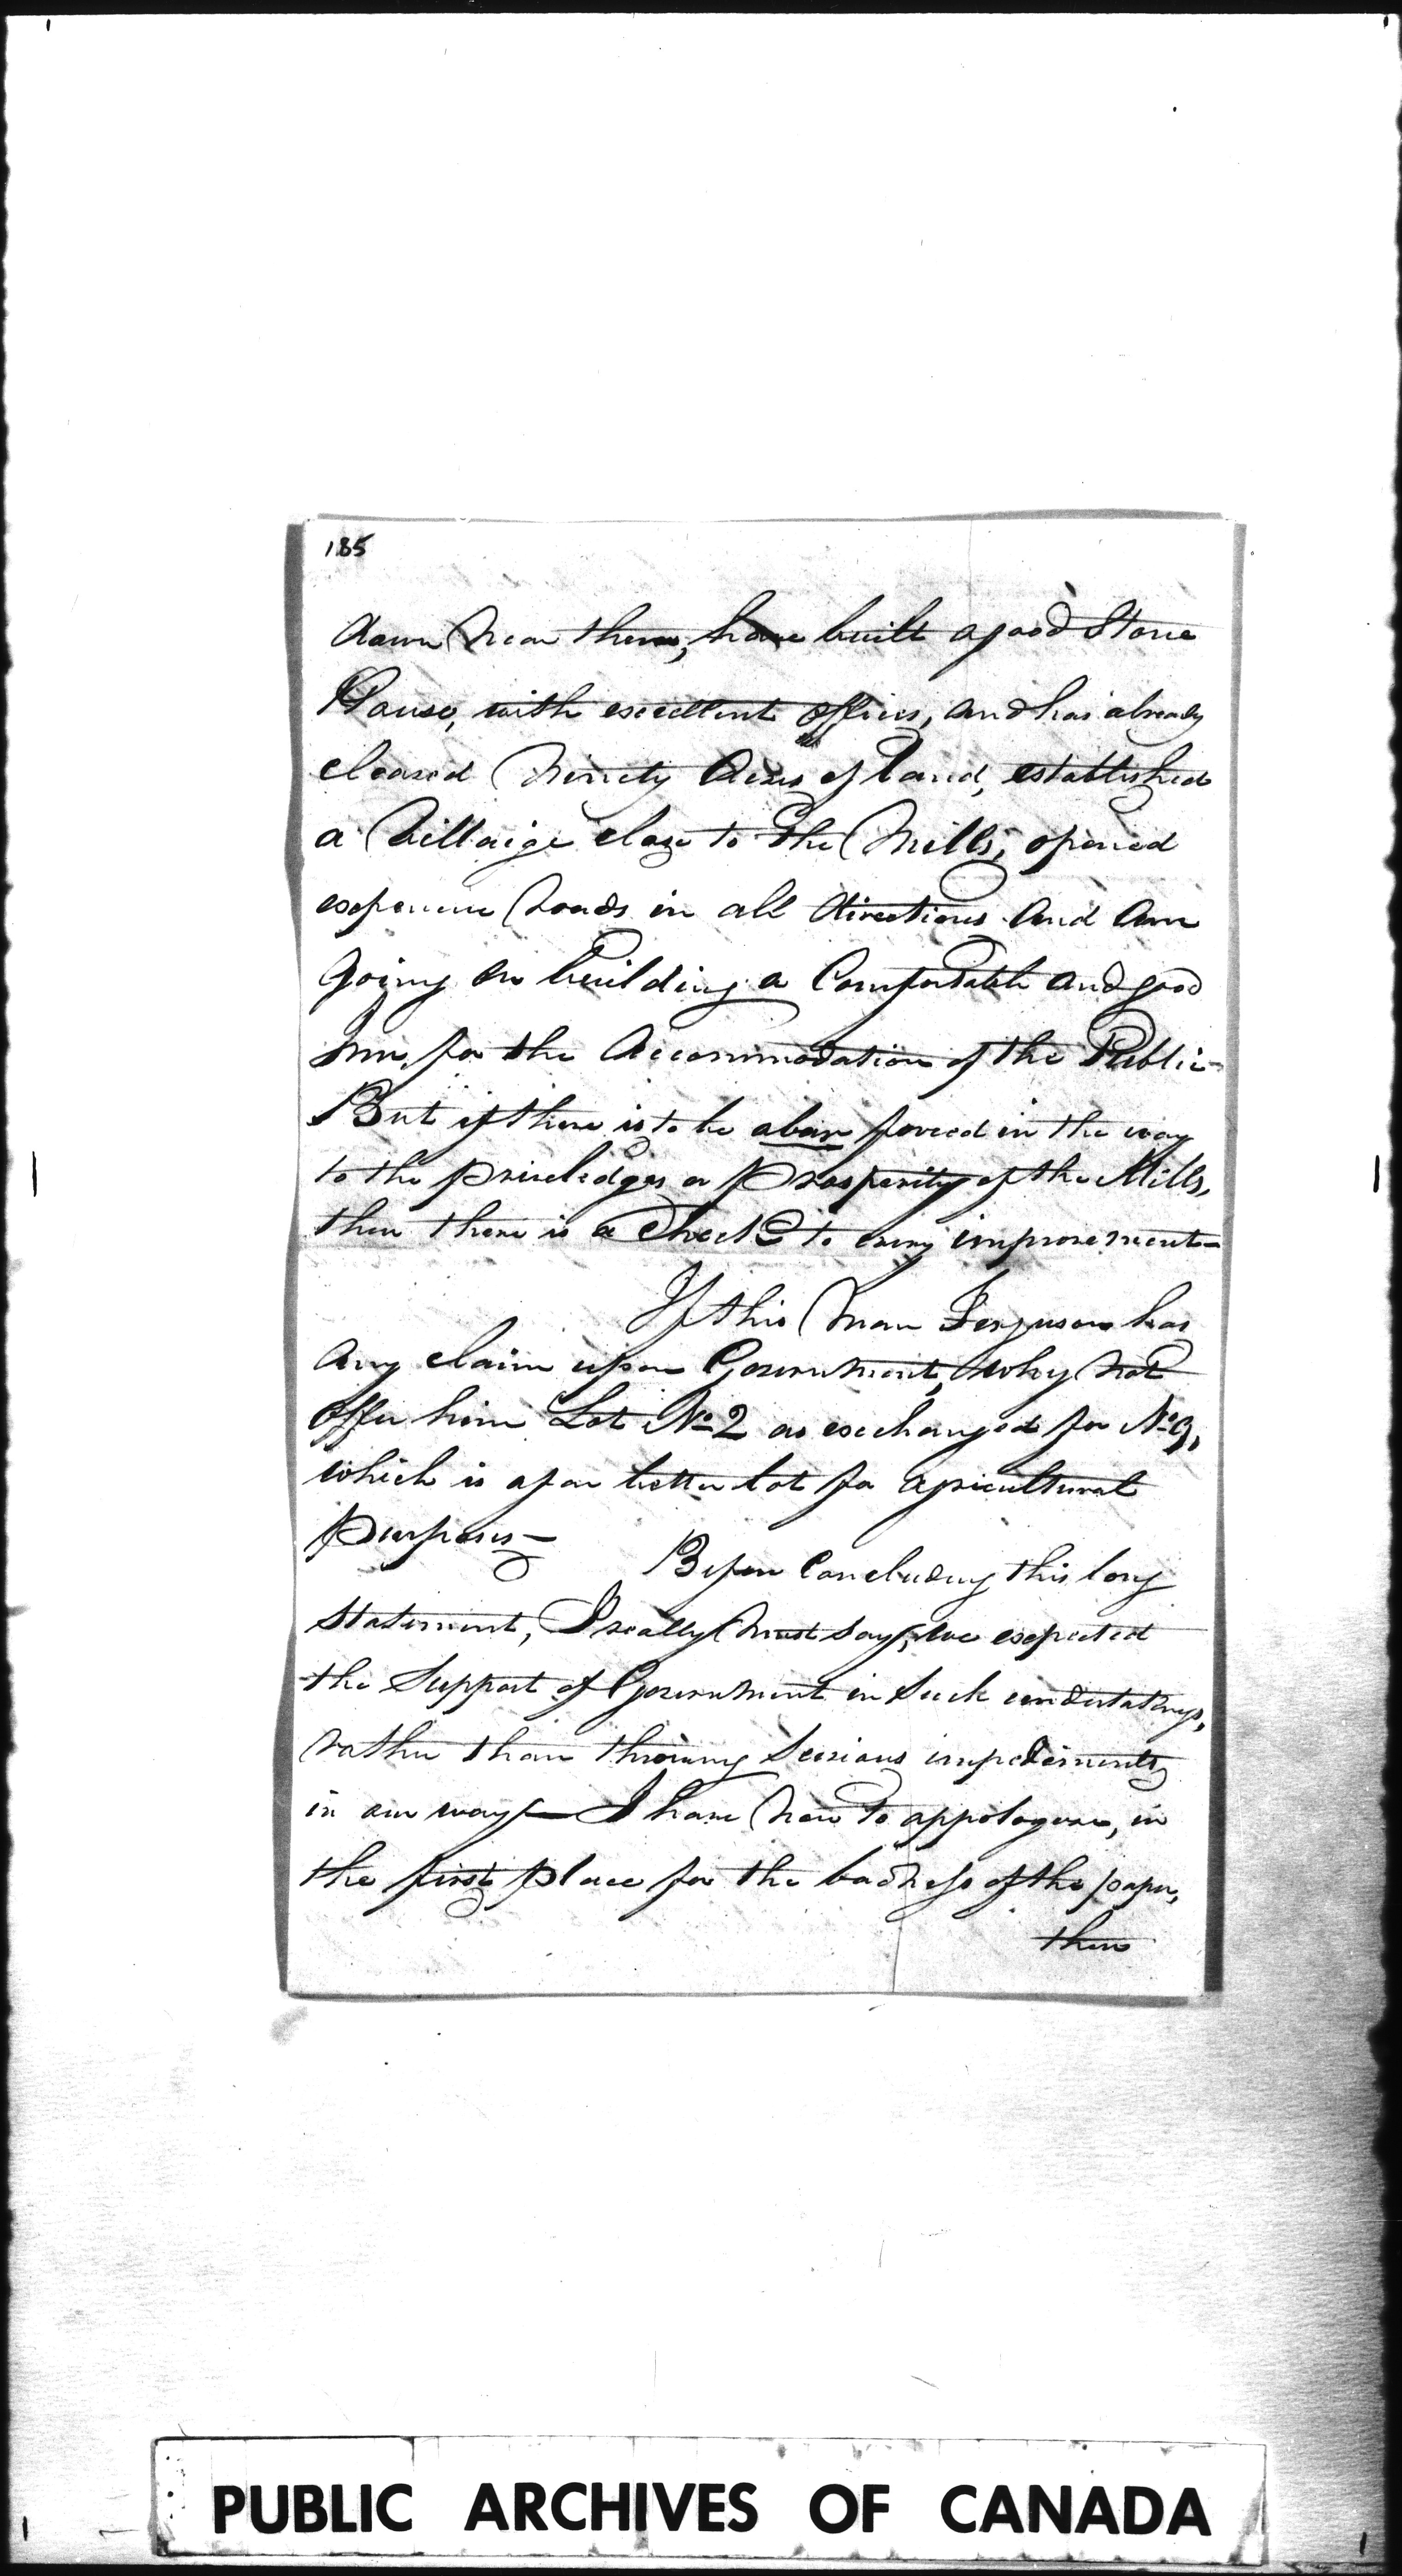 185
down near them, have built a good Stone
House, with excellent offices, and has already
cleared Ninety Acres of land, established
a Villaige close to the Mills, opened
expensive Roads in all directions and am
going on building a Comfortable and good
Inn, for the Accommodation of the Public-
But if there is to be a bar forced in the way
to the priveledges or Prosperity of the Mills,
then there is a Check to every improvement-
If this Man Ferguson has
any claim upon Government, why not
offer him Lot No 2 as exchanged for No 9,
which is a far better lot for agricultural
purposes-
Before Concluding this long
statement, I really must say, we expected
the Support of Government in such undertakings,
rather than throwing Serious impediments
in our way - I have now to appologise, in
the first place for the badness of the paper,
then
PUBLIC ARCHIVES OF CANADA